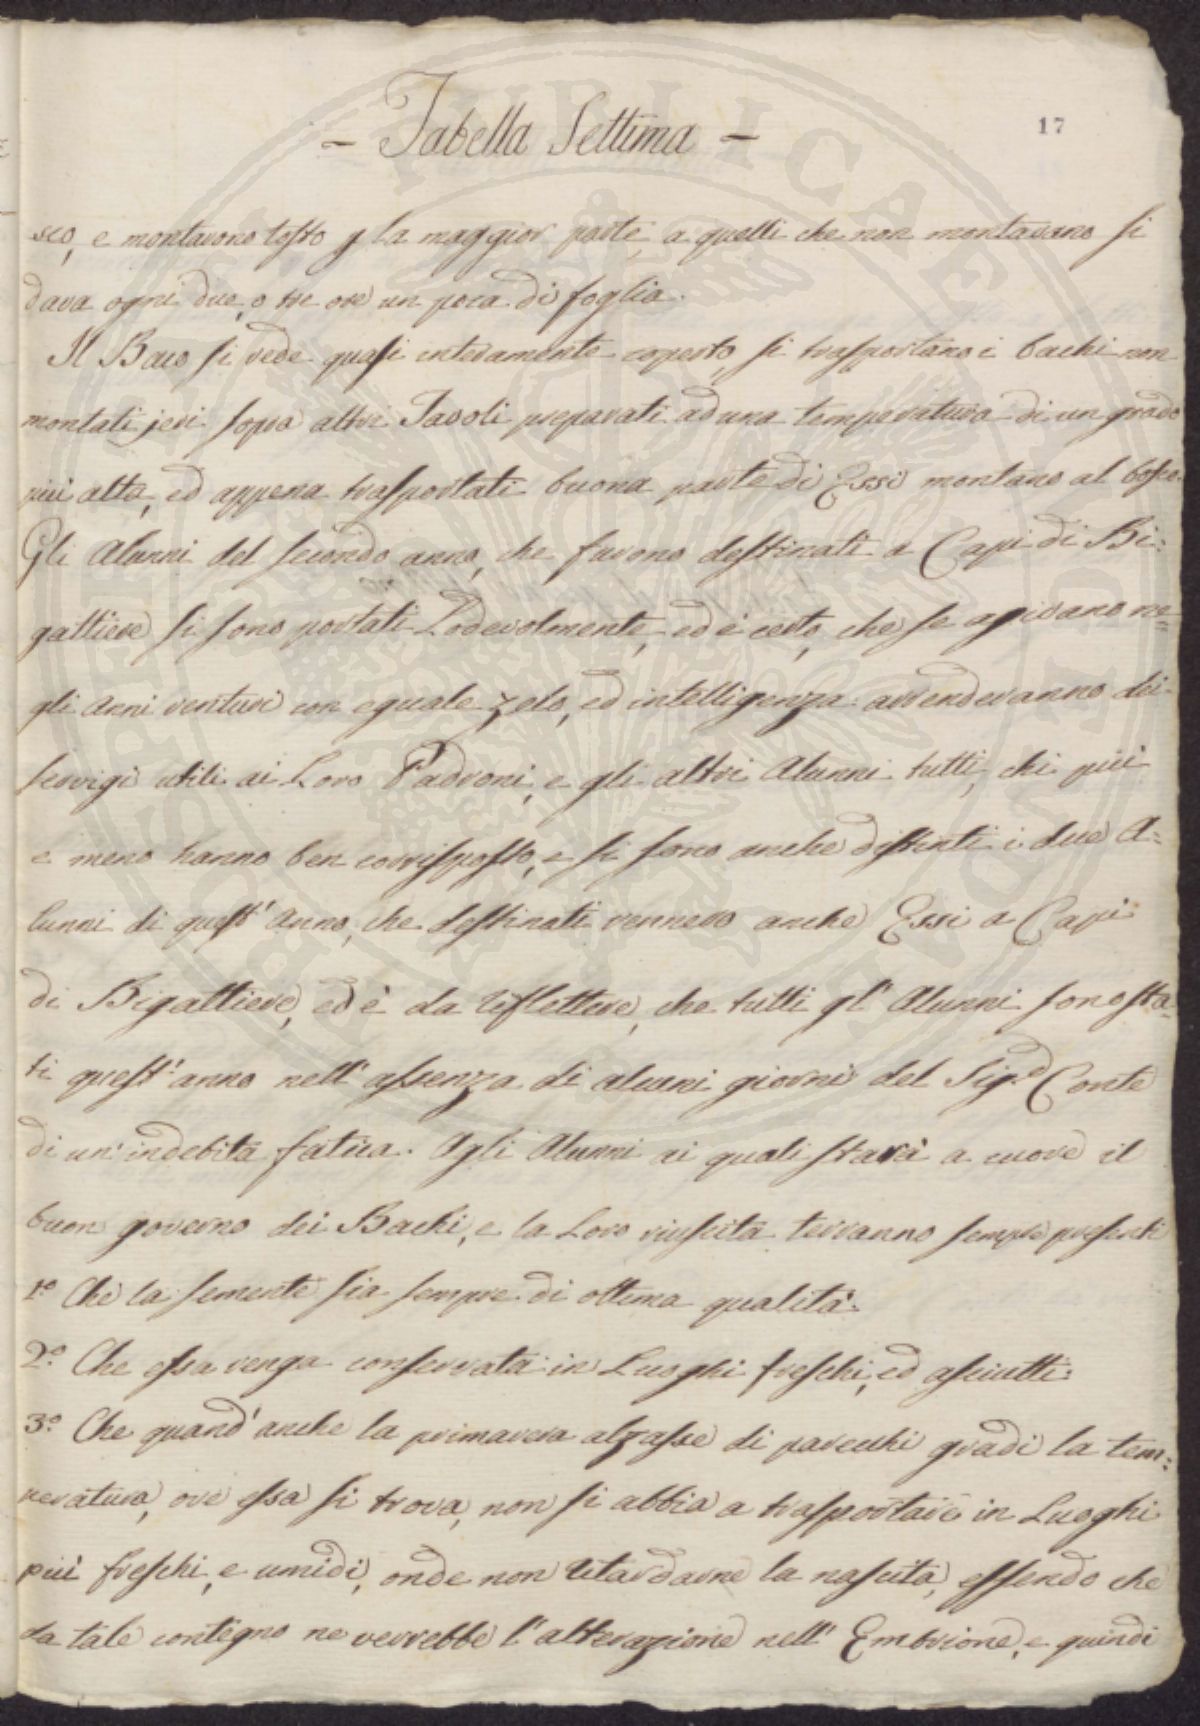 17
– Tabella Settima –
sco, e montavono tosto p la maggior parte, a quelli che non montavano si
dava ogni due, o tre ore un poca di foglia.
Il Baco si vede quasi interamente coperto, si trasportano i bachi non
montati jeri sopra altri Tavoli preparati ad una temperatura di un grado
più alta, ed appena trasportati buona parte di Essi montano al bosco.
Gli Alunni del secondo anno, che furono destinati a Capi di Bi:
gattiere si sono portati Lodevolmente, ed è certo, che se agirano ne=
gli Anni venturi con eguale zelo, ed intelligenza: arrenderanno dei
servigi utili ai Loro Padroni, e gli altri Alunni tutti, chi più
e meno hanno ben corrisposto, e si sono anche distinti i due A:
lunni di quest' Anno, che destinati vennero anche Essi a Capi
di Bigattiere, ed è da riflettere, che tutti gl' Alunni sono sta=
ti quest' anno nell' assenza di alcuni giorni del Sig.r Conte
di un' indebita fatica. Agli Alunni ai quali starà a cuore il
buon governo dei Bachi, e la Loro riuscita terranno sempre presenti
1.o Che la semente sia sempre di ottima qualità.
2.o Che essa venga conservata in Luoghi freschi, ed asciutti:
3.o Che quand' anche la primavera alzasse di parecchi gradi la tem=
peratura, ove essa si trova, non si abbia a trasportare in Luoghi
più freschi, e umidi, onde non ritardarne la nascita, essendo che
da tale contegno ne verrebbe l' alterazione nell' Embrione, e quindi